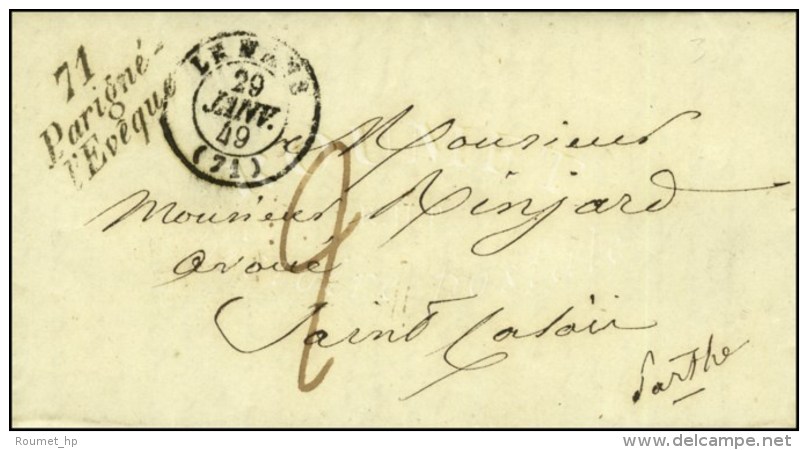 71
Parigné-
l'Evêque
LE MANS
29
JANV.
49
(71)
Monsieur
Monsieur Rinjard
avoué
2
Saint Calais
Sarthe
Roumet_hp
delcampe.net